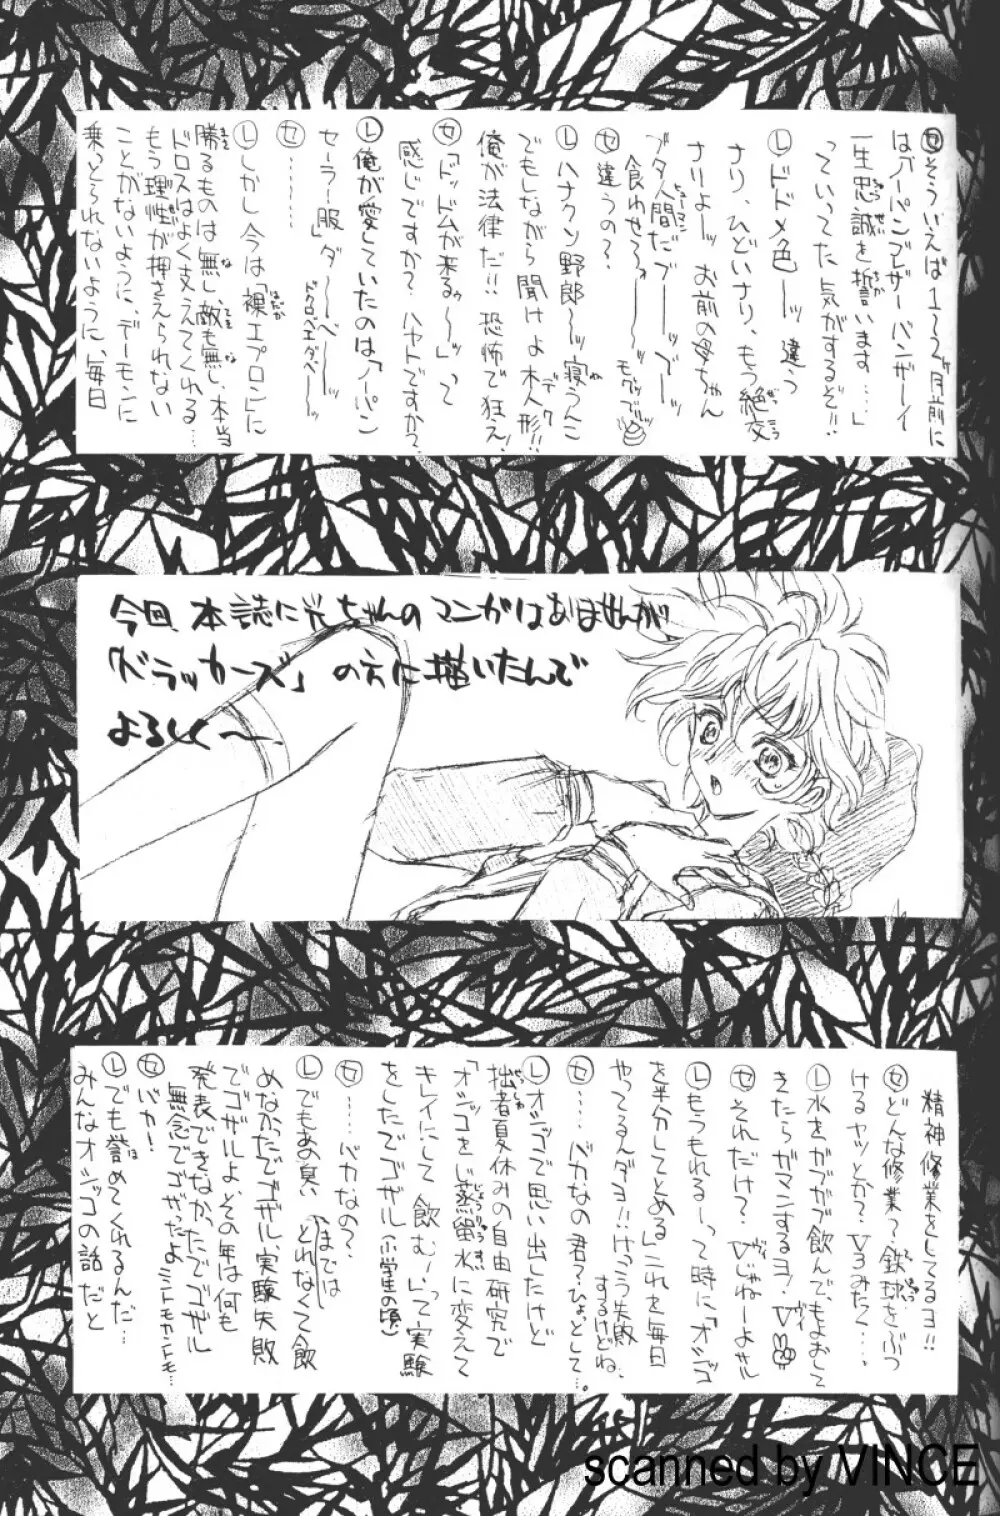 ㋝そういえば1〜2ヶ月前に
は「ノーパンブレザーバンザーイ
一生忠誠を誓います……」
っていってた気がするぞ!!
Ⓛドドメ色ーーッ 違う
ナリ、ひどいナリ、もう絶交
ナリよーッ お前の母ちゃん
ブタ人間だブーーッブーッ
食わせてろォーーッ モグッブリ
㋝違うの?
Ⓛハナクソ野郎〜ッ寝うんこ
でもしながら聞けよ木人形!!
俺が法律だ!!恐怖で狂え!
㋝「ドッドムが来るゥ〜ッ」って
感じですか?ハヤトですか?
Ⓛ俺が愛していたのは「ノーパン
セーラー服」ダーベーーッ
ドクロベエダベ〜ッ
㋝………
Ⓛしかし今は「裸エプロン」に
勝るものは無し、敵も無し、本当
ドロスはよく支えてくれる…
もう理性が押さえられない
ことがないように、デーモンに
乗っとられないように、毎日
今回、本誌に光ちゃんのマンガはありませんが
「ドラッカーズ」の方に描いたんで
よろしく〜
精神修業をしてるヨ!!
㋝どんな修業?鉄球をぶつ
けるヤッとか?V3みたく….
Ⓛ水をガブガブ飲んで、もよおして
きたらガマンするヨ!V
㋝それだけ?Vじゃねーよサル
Ⓛもうもれるーって時に「オシッコ
を半分してとめる」これを毎日
やってるんダヨ!!けっこう失敗
するけどね、
㋝……バカなの君?ひょっとして…。
Ⓛオシッコで思い出したけど
拙者夏休みの自由研究で
「オシッコをじょうりゅうすい蒸留水に変えて
キレイにして飲むノー」って実験
をしたでゴザル(小学生の頃)
㋝……バカなの?
Ⓛでもあ臭いがとれなくて飲
めなかったでゴザル、実験失敗
でゴザルよ、その年は何も
発表できなかったでゴザル
無念でゴザったよ
㋝バカ!
Ⓛでも誉めてくれるんだ…
みんなオシッコの話だと
scanned by VINCE